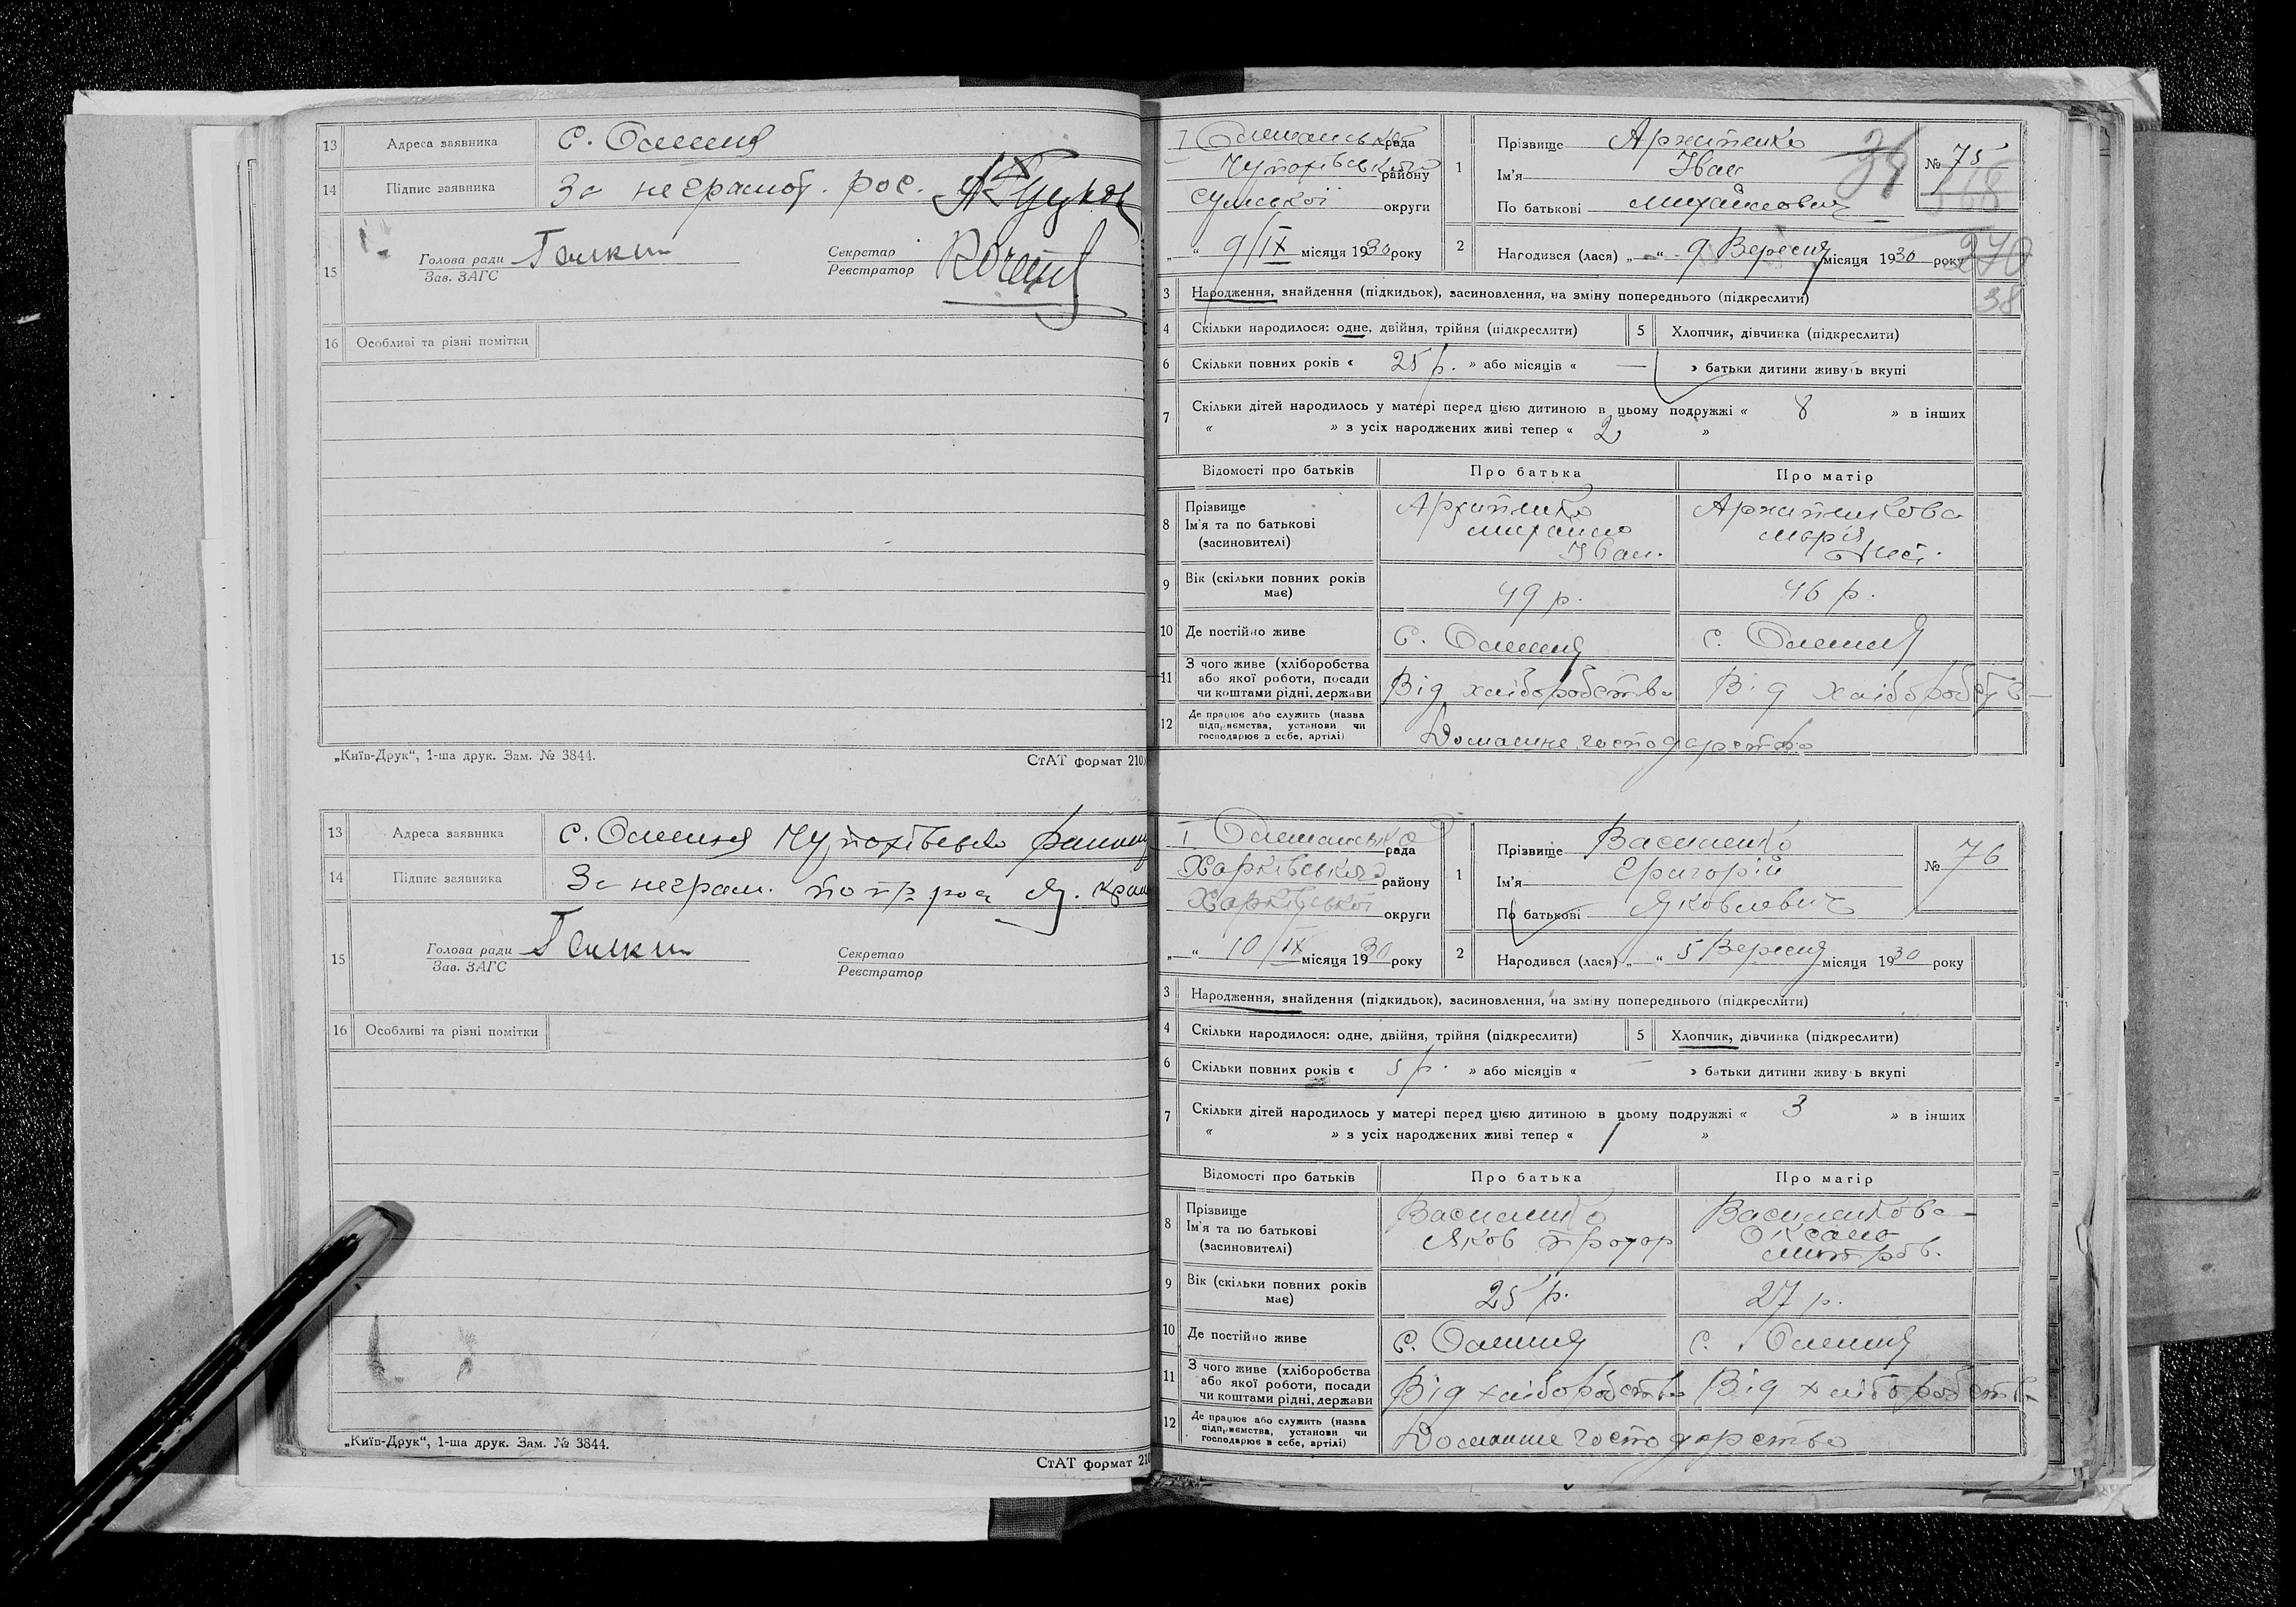 13 Адреса заявника С. Олешня
14 Підпис заявника За неграмот. рос.
15 Голова ради Зав. ЗАГС Галкин Секретар Реєстратор
16 Особливі та різні помітки
„Київ-Друк“, 1-ша друк. Зам. № 3844. СтАТ формат 210
13 Адреса заявника С. Олешня Чупохівсько
14 Підпис заявника За неграм.
15 Голова ради Зав. ЗАГС Галкин Секретар Реєстратор
16 Особливі та різні помітки
„Київ-Друк“, 1-ша друк. Зам. № 3844.
СтАТ формат 210
І Олешанська рада
Чупохівського району
Сумської округи
„ “ 9/ІХ місяця 1930 року
1 Прізвище Архипенко
Ім'я Іван
По батькові Михайлович
№ 75
34
270
38
2 Народився (лася) „ “ 9 Вересня місяця 1930 року
3 Народження, знайдення (підкидьок), засиновлення, на зміну попереднього (підкреслити)
4 Скільки народилося: одне, двійня, трійня (підкреслити) 5 Хлопчик, дівчинка (підкреслити)
6 Скільки повних років « 25 р. » або місяців « — » батьки дитини живуть вкупі
7 Скільки дітей народилось у матері перед цією дитиною в цьому подружжі « 8 » в інших
« » з усіх народжених живі тепер « 2 »
Відомості про батьків Про батька Про матір
8 Прізвище Ім'я та по батькові (засиновителі)
Архипенко Михайло Іван.
Архипенкова Марія
9 Вік (скільки повних років має) 49 р. 46 р.
10 Де постійно живе С. Олешня С. Олешня
11 З чого живе (хліборобства або якої роботи, посади чи коштами рідні, держави Від хліборобства Від хліборобств
12 Де працює або служить (назва підприємства, установи чи господарює в себе, артілі) Домашне господарство
І Олешанська рада
Харківського району
Харківської округи
„ “ 10/ІХ місяця 1930 року
1 Прізвище Василенко
Ім'я Григорій
По батькові Яковлевич
№ 76
2 Народився (лася) „ “ 5 Вересня місяця 1930 року
3 Народження, знайдення (підкидьок), засиновлення, на зміну попереднього (підкреслити)
4 Скільки народилося: одне, двійня, трійня (підкреслити) 5 Хлопчик, дівчинка (підкреслити)
6 Скільки повних років « 5 р. » або місяців « — » батьки дитини живуть вкупі
7 Скільки дітей народилось у матері перед цією дитиною в цьому подружжі « 3 » в інших
« » з усіх народжених живі тепер « 1 »
Відомості про батьків Про батька Про матір
8 Прізвище Ім'я та по батькові (засиновителі)
Василенко Яков Прохор
Василенкова Оксана Митров.
9 Вік (скільки повних років має) 25 р. 27 р.
10 Де постійно живе С. Олешня С. Олешня
11 З чого живе (хліборобства або якої роботи, посади чи коштами рідні, держави Від хліборобства Від хліборобства
12 Де працює або служить (назва підприємства, установи чи господарює в себе, артілі) Домашне господарство